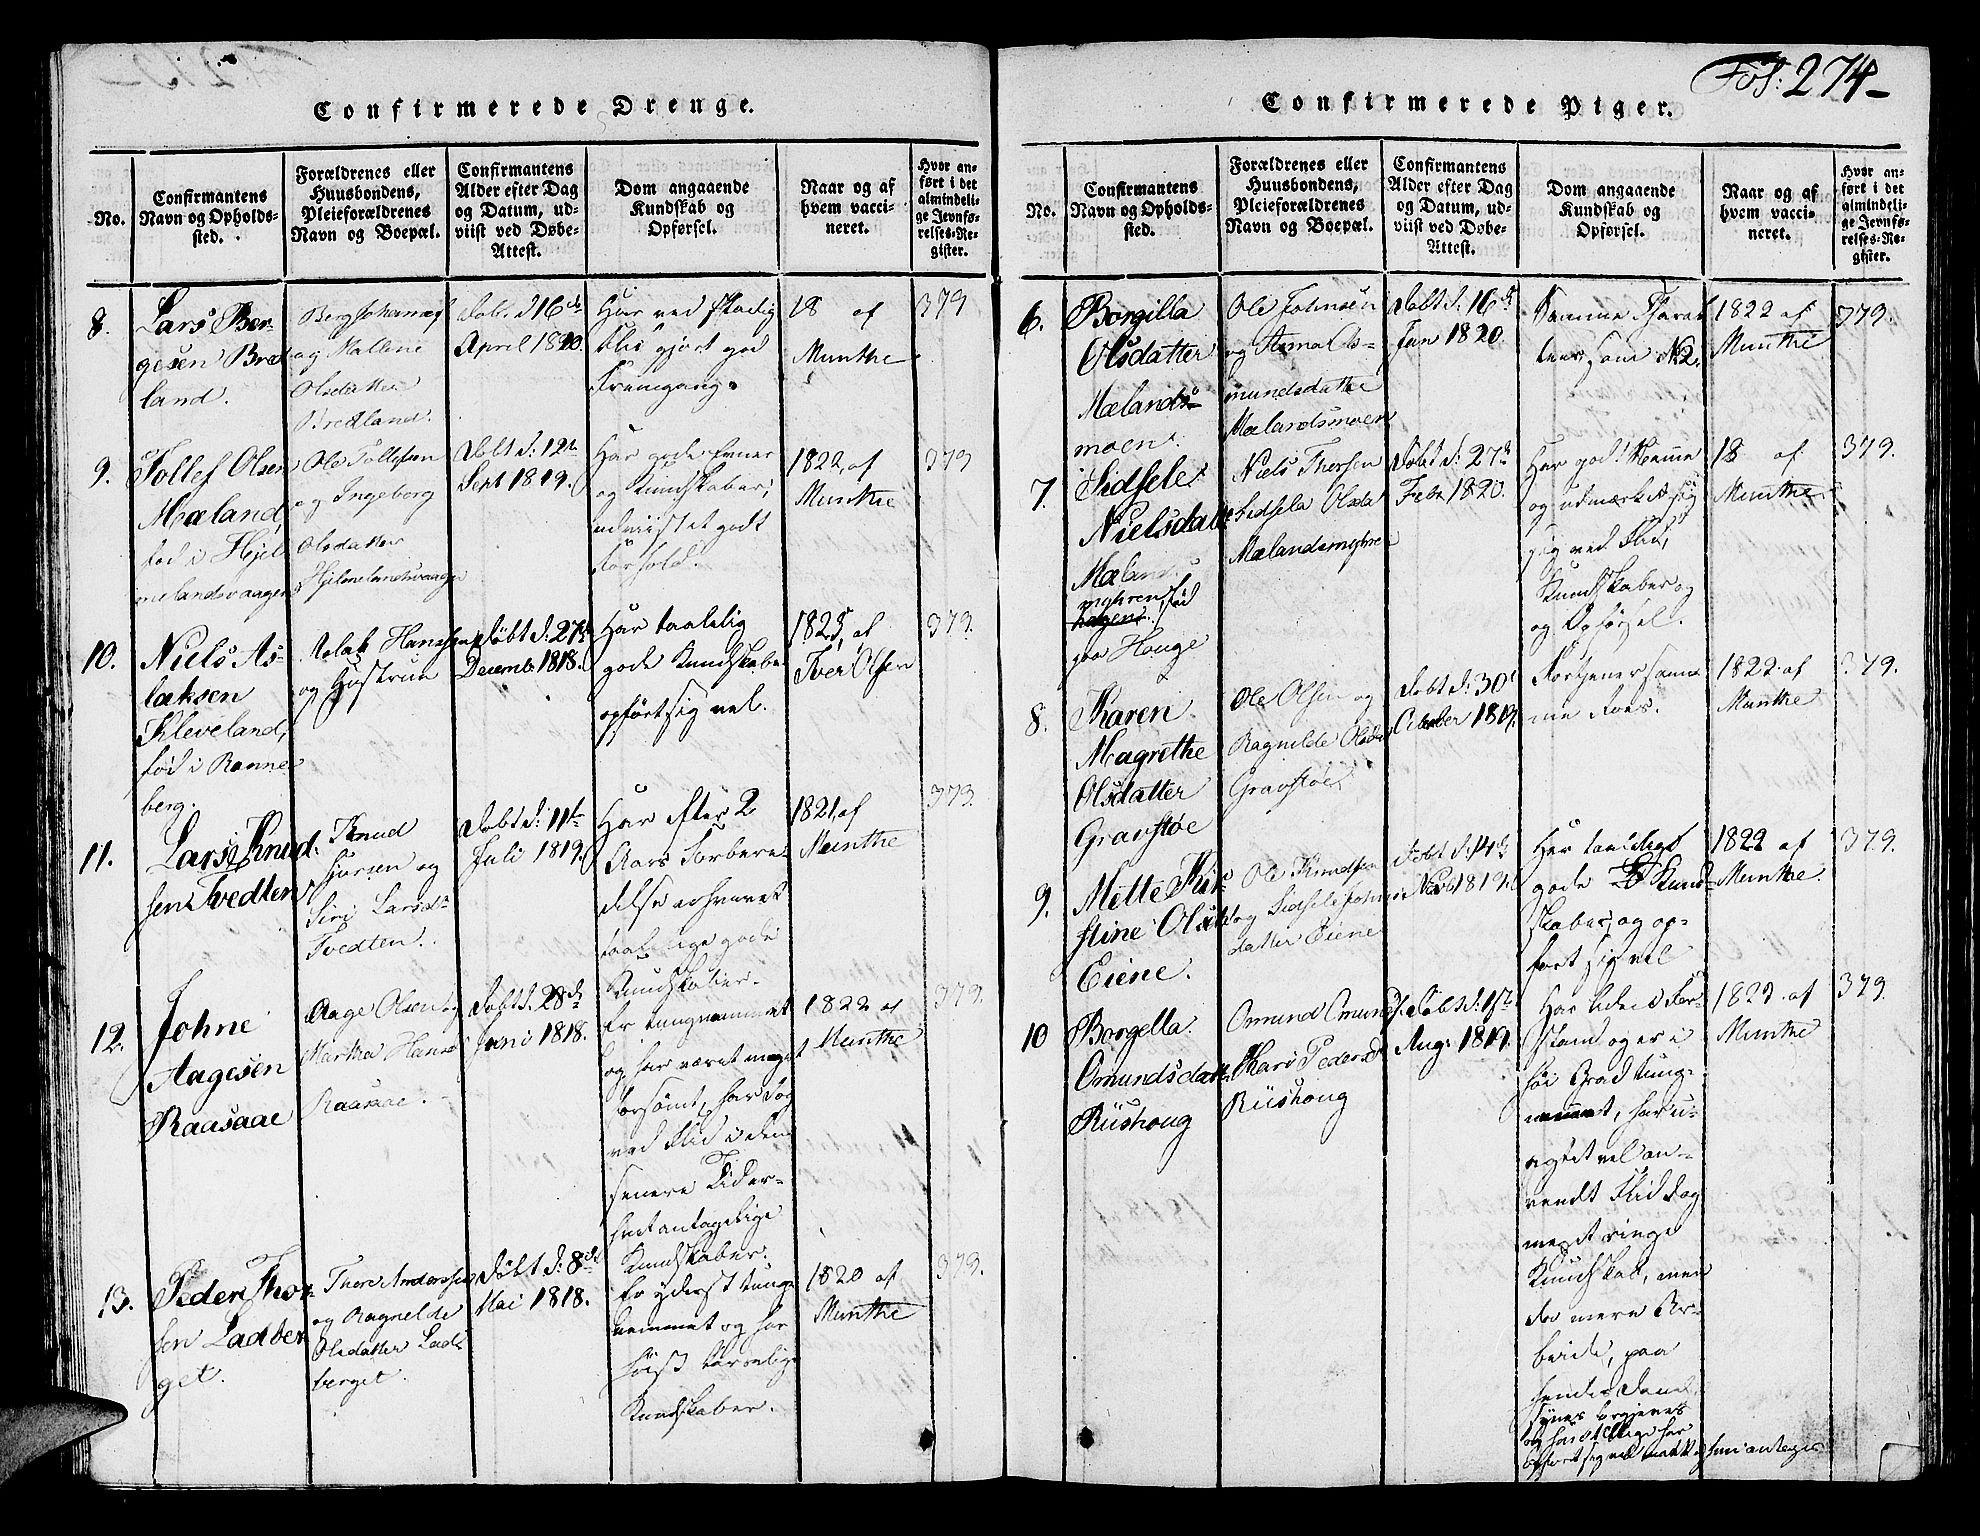 Fol. 274
Confirmerede Drenge.
No.
Confirmantens Navn og Opholdssted.
Forældrenes eller Huusbondens, Pleieforældrenes Navn og Boepæl.
Confirmantens Alder efter Dag og Datum, udviist ved Døbe-Attest.
Dom angaaende Kundskab og Opførsel.
Naar og af hvem vaccineret.
Hvor anført i det almindelige Jevnførelses-Register.
8.
Lars Ber-
gesen Bret
land.
og Mallene
Olsdatter
Bretland.
Døbt d 16de
April 1820.
Har ved stadig
Flid gjort god
Fremgang.
18 af
Munthe
379
9.
Tollef Olsen
Mæland,
fød i Hjel
melandsvaagen
Ole Tollefsen
og Ingeborg
Olsdatter
Hjelmelandsvaage
Døbt d: 12te
Sept 1819.
Har gode Evner
og Kundskaber,
udviist et godt
Forhold.
1822 af
Munthe
379
10.
Niels As-
laksen
Kleveland,
fød i Renne
berg.
Aslak Hansen
og Gustrun
Døbt d: 27de
Decemb 1818.
Har taalelig
gode Kundskaber
opført sig vel.
1825 af
Iver Olsen
379.
11.
Lars Knud-
sen Tvedten
Knud
og
Siri Larsd
Tvedten.
Døbt d: 11te
Juli 1819.
Har efter 2
Aars Forbere
delse erhvervet
taalelige gode
Kundskaber.
1821 af
Munthe
379.
12.
Johne
Aagesen
Raasaae
Aage Olsen og
Martha Hans
Raasaae.
Døbt d. 28de
Juni 1818.
Er tungnemmet
og har været meget
forsømt, har dog
ved Flid i den
senere Tid er-
hvet antagelige
Kundskaber.
1822 af
Munthe
379.
13.
Peder Thor-
sen Ladber
get.
Thore Anderssen
og Ragnelde
Olsdatter Lad-
berget.
Døbt d: 8de
Mai 1818.
Er yderst tung
nemmet og har
høist tarvelige
Kundskaber.
1820 af
Munthe
379.
Confirmerede Piger.
No.
Confirmantens Navn og Opholdssted.
Forældrenes eller Huusbondens, Pleieforældrenes Navn og Boepæl.
Confirmantens Alder efter Dag og Datum, udviist ved Døbe-Attest.
Dom angaaende Kundskab og Opførsel.
Naar og af hvem vaccineret.
Hvor anført i det almindelige Jevnførelses-Register.
6.
Borgilla
Olsdatter
Mælands-
moen.
Ole Johnsen
og Anna As-
mundsdatter
Mælandsmoen
Døbt d. 16de
Jan 1820.
Samme Charak
teer som N2.
1822 af
Munthe
379.
7.
Sidsele
Nielsdatt
Mælands
myhren, fød
paa Houge
Niels Thorsen
Sidsela Olsda
Mælandsmyhre
Døbt d: 27de
Febr 1820.
Har god Nemme
og udmærket sig
sig ved Flid,
Kundskaber og
og Opførsel.
18 af
Munthe
379.
8.
Karen
Magrethe
Olsdatter
Gravstøe
Ole Olsen og
Ragnilde Olsda
Gravstøe
Døbt d: 30te
October 1819.
Fortjener sam-
me Roes.
1822 af
Munthe
379.
9.
Mette Kir-
stine Olsdt
Eiene.
Ole Knudsen
og Sidsele Johns
datter Eiene
Døbt d. 14de
Novb 1819.
Har taaleligt
gode Kund-
skaber og op-
ført sig vel
1822 af
Munthe
379.
10
Borgella
Omundsdatt
Riishoug
Omund Omunds
Kari Pedersd
Riishoug
Døbt d: 15te
Aug: 1819.
Har liden For-
stand og er i
høi Grad tung-
nemmet, har u-
agtet vel an-
vendt Flid dog
meget ringe
Kundskab, men
da mere Ar-
beide, paa
hende
synes orgjeves
og har stillige har
opført sig vel
1823 af
Munthe
379.